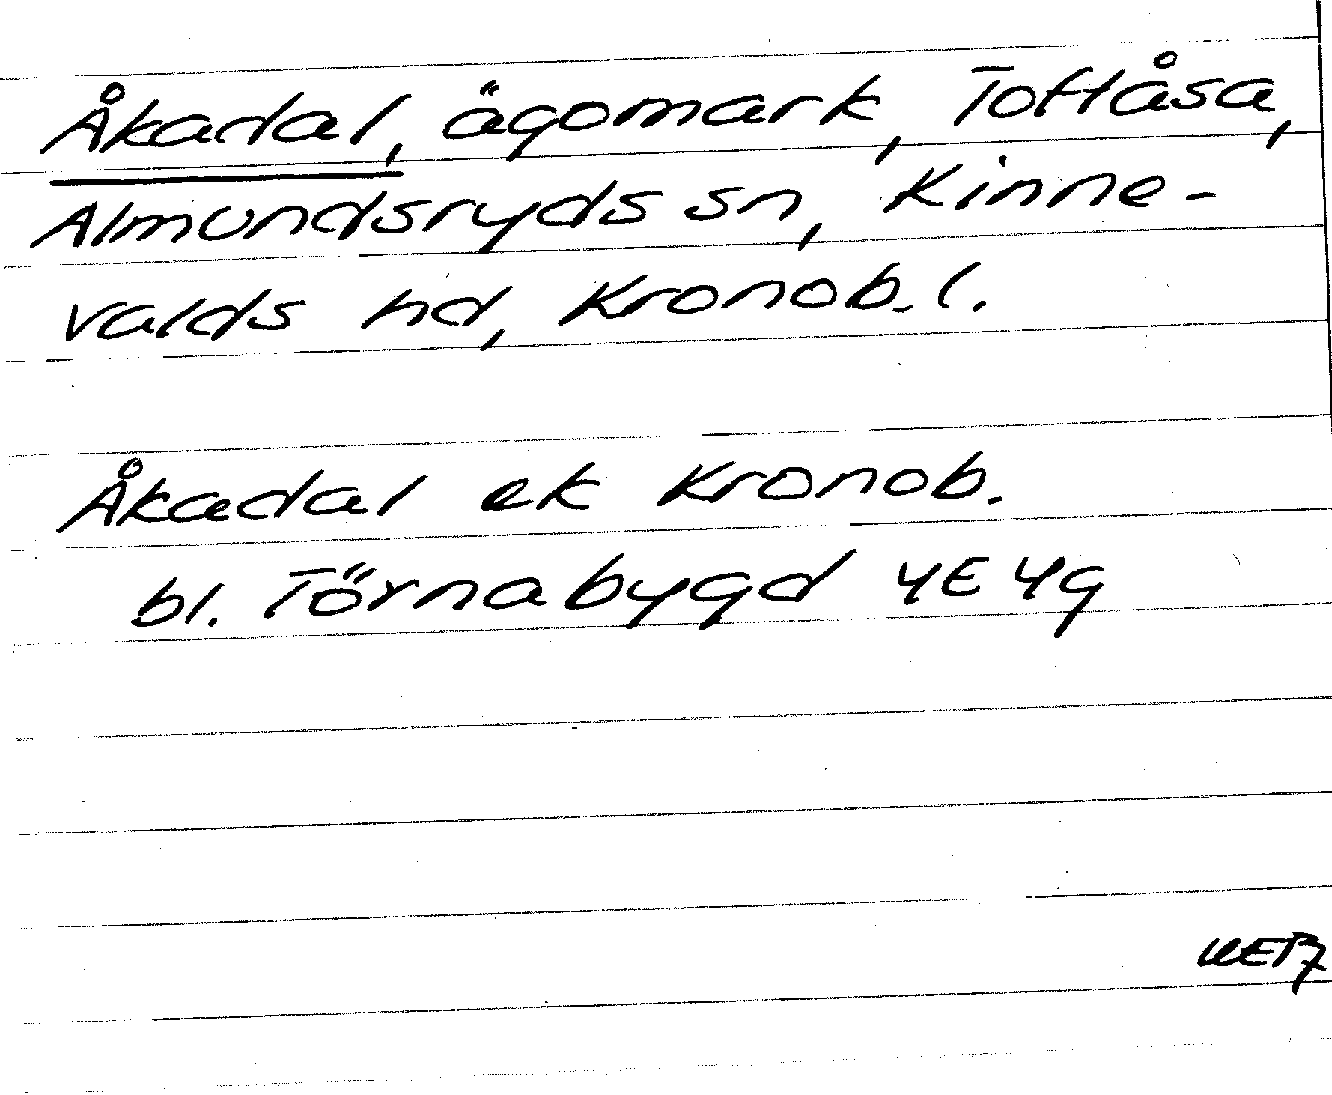 Åkadal, ägomark, Toftåsa,
Almundsryds sn, Kinne-
valds hd, Kronob. l.
Åkadal ek Kronob.
bl. Törnabygd 4E 4g